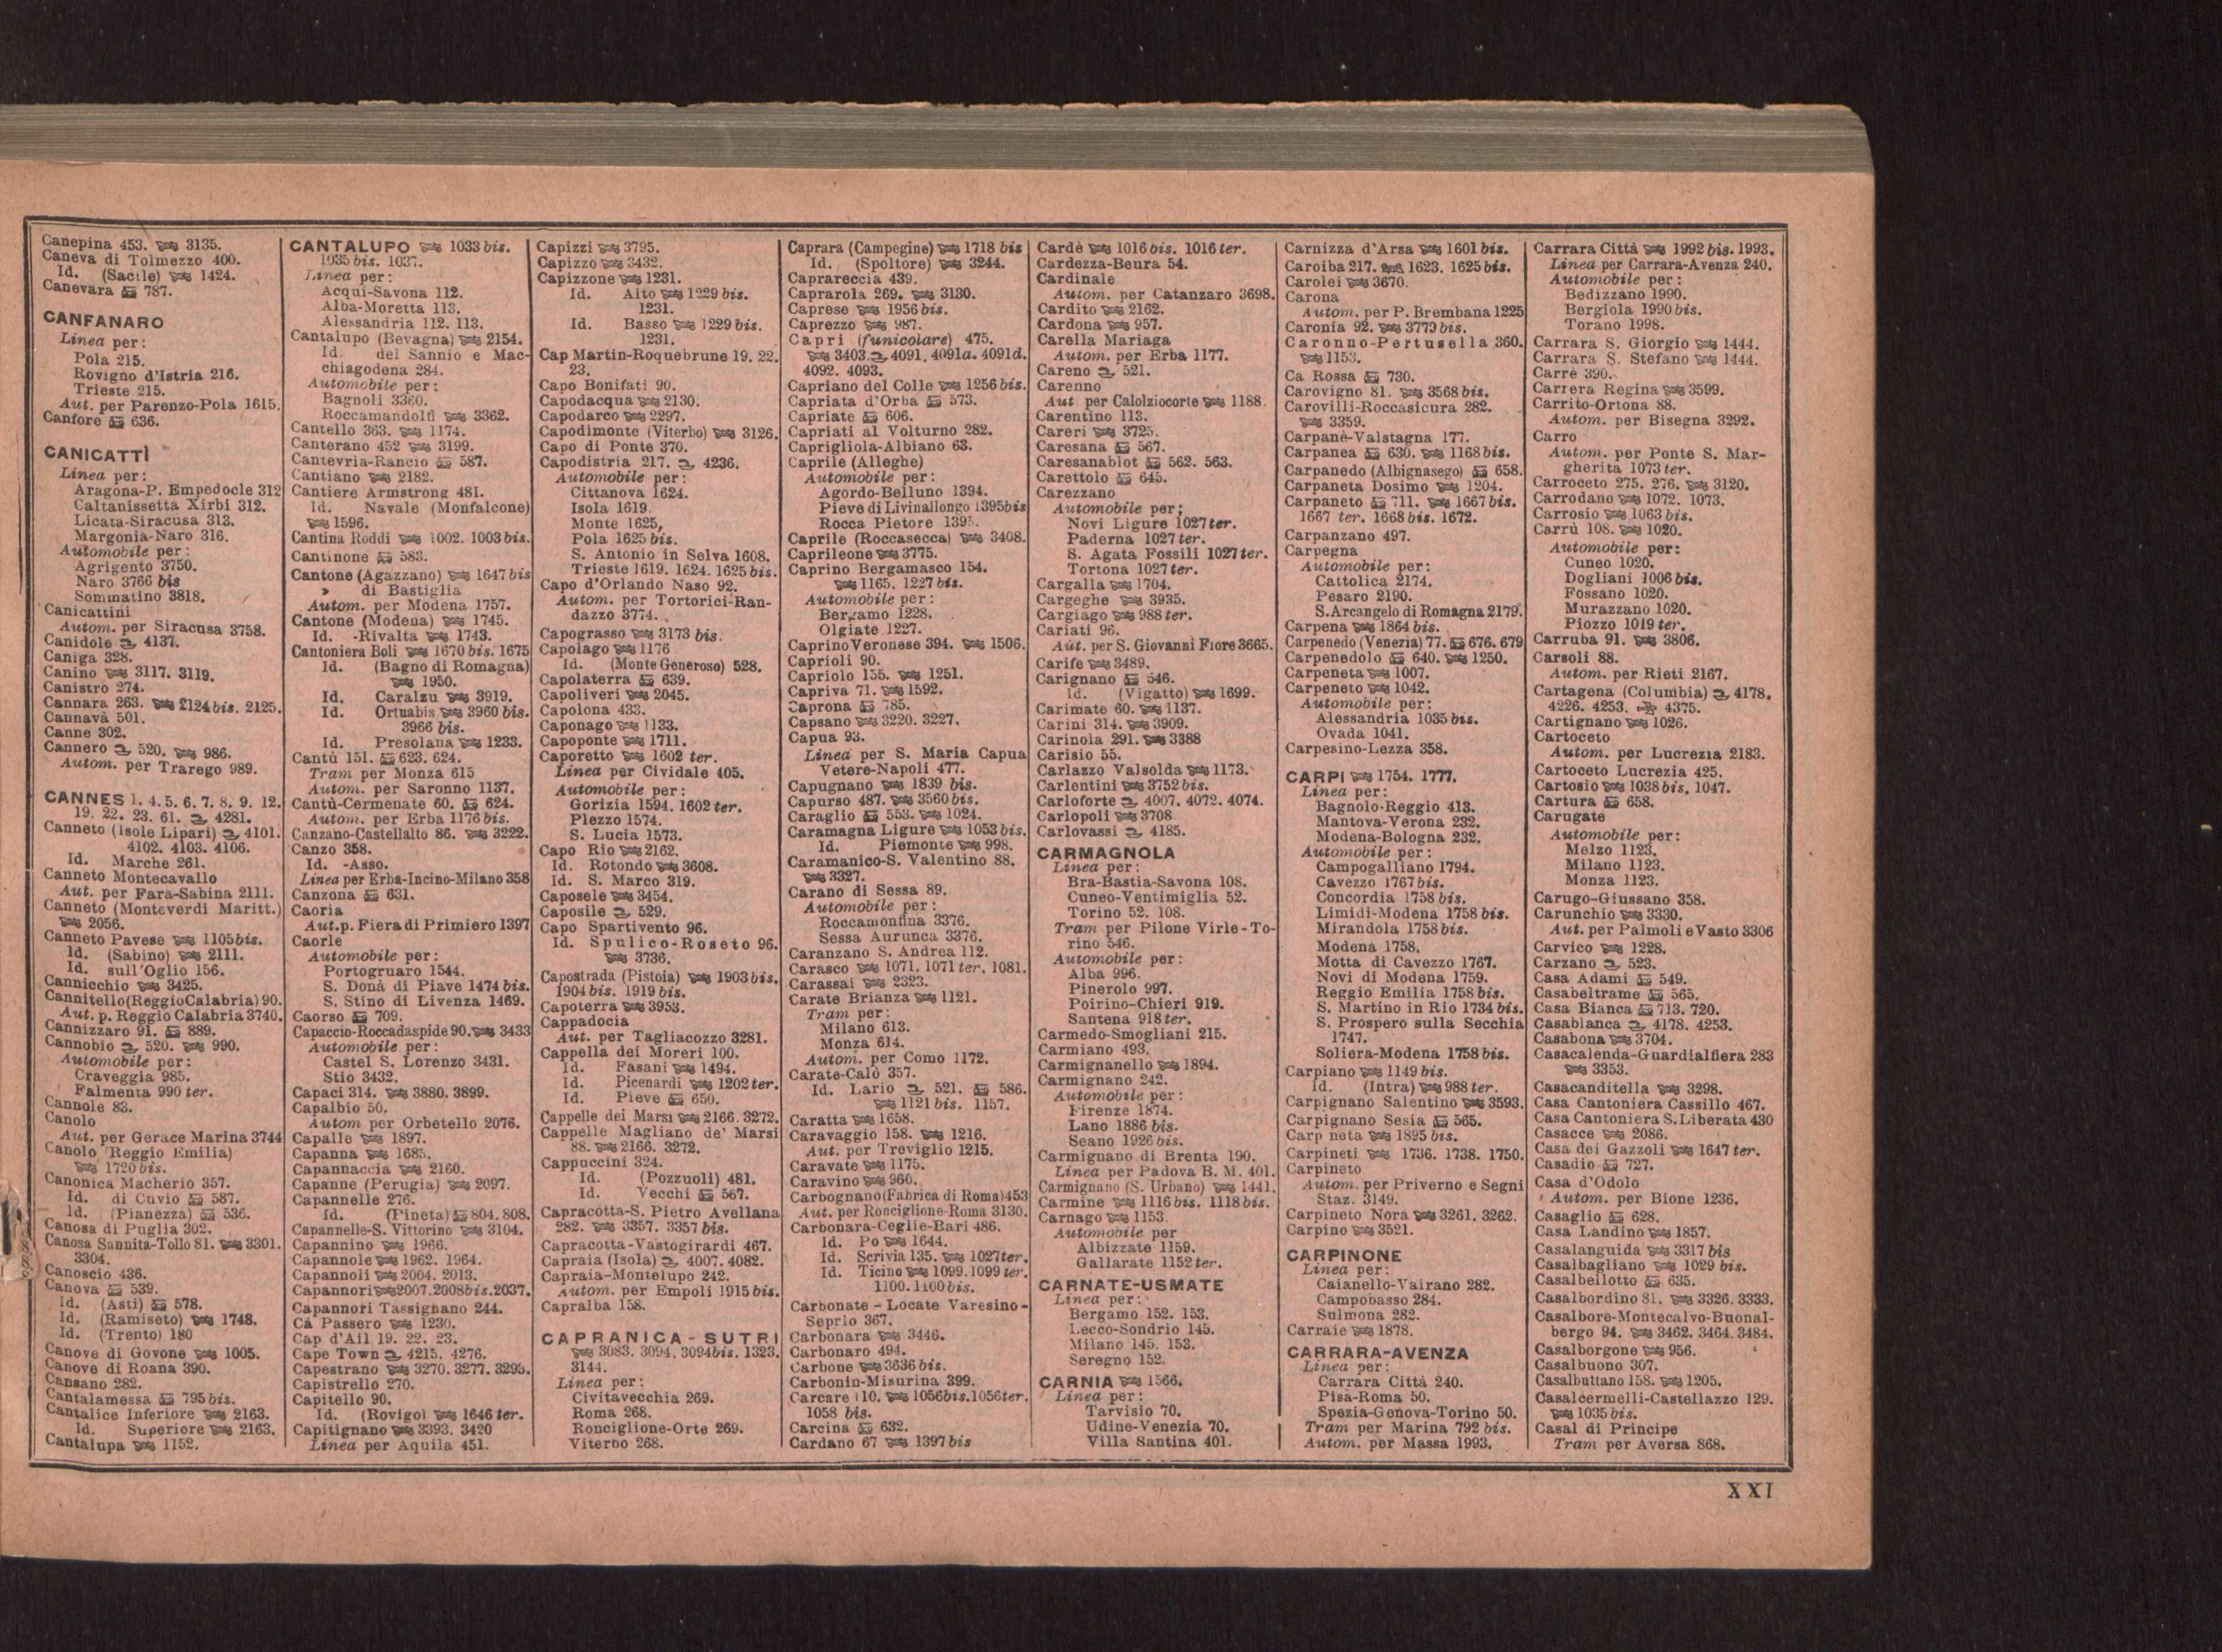 Canepina 453. 3135.
Caneva di Tolmezzo 400.
Id. (Sacile) 1424.
Canevara 787.
CANFANARO
Linea per:
Pola 215.
Rovigno d'Istria 216.
Trieste 215.
Aut. per Parenzo-Pola 1615.
Canfore 636.
CANICATTÌ
Linea per:
Aragona-P. Empedocle 312
Caltanissetta Xirbi 312.
Licata-Siracusa 313.
Margonia-Naro 316.
Automobile per:
Agrigento 3750.
Naro 3766 bis
Sommatino 3818.
Canicattini
Autom. per Siracusa 3758.
Canidole 4137.
Caniga 328.
Canino 3117. 3119.
Canistro 274.
Cannara 263. 2124 bis. 2125.
Cannavà 501.
Canne 302.
Cannero 520. 986.
Autom. per Trarego 989.
CANNES 1. 4. 5. 6. 7. 8. 9. 12.
19. 22. 23. 61. 4281.
Canneto (Isole Lipari) 4101.
4102. 4103. 4106.
Id. Marche 261.
Canneto Montecavallo
Aut. per Fara-Sabina 2111.
Canneto (Monteverdi Maritt.)
2056.
Canneto Pavese 1105 bis.
Id. (Sabino) 2111.
Id. sull'Oglio 156.
Cannicchio 3425.
Cannitello (Reggio Calabria) 90.
Aut. p. Reggio Calabria 3740.
Cannizzaro 91. 889.
Cannobio 520. 990.
Automobile per:
Craveggia 985.
Falmenta 990 ter.
Cannole 83.
Canolo
Aut. per Gerace Marina 3744
Canolo Reggio Emilia)
1720 bis.
Canonica Macherio 357.
Id. di Cuvio 587.
Id. (Pianezza) 536.
Canosa di Puglia 302.
Canosa Sannita-Tollo 81. 3301.
3304.
Canoscio 436.
Canova 539.
Id. (Asti) 578.
Id. (Ramiseto) 1748.
Id. (Trento) 180
Canove di Govone 1005.
Canove di Roana 390.
Cansano 282.
Cantalamessa 795 bis.
Cantalice Inferiore 2163.
Id. Superiore 2163.
Cantalupa 1152.
CANTALUPO 1033 bis.
1035 bis. 1037.
Linea per:
Acqui-Savona 112.
Alba-Moretta 113.
Alessandria 112. 113.
Cantalupo (Bevagna) 2154.
Id. del Sannio e Mac-
chiagodena 284.
Automobile per:
Bagnoli 3360.
Roccamandolfi 3362.
Cantello 363. 1174.
Canterano 452 3199.
Cantevria-Rancio 587.
Cantiano 2182.
Cantiere Armstrong 481.
Id. Navale (Monfalcone)
1596.
Cantina Roddi 1002. 1003 bis.
Cantinone 583.
Cantone (Agazzano) 1647 bis
» di Bastiglia
Autom. per Modena 1757.
Cantone (Modena) 1745.
Id. -Rivalta 1743.
Cantoniera Boli 1670 bis. 1675
Id. (Bagno di Romagna)
1950.
Id. Caralzu 3919.
Id. Ortuabis 3960 bis.
3966 bis.
Id. Presolana 1233.
Cantù 151. 623. 624.
Tram per Monza 615
Autom. per Saronno 1137.
Cantù-Cermenate 60. 624.
Autom. per Erba 1176 bis.
Canzano-Castellalto 86. 3222.
Canzo 358.
Id. -Asso.
Linea per Erba-Incino-Milano 358
Canzona 631.
Caoria
Aut. p. Fiera di Primiero 1397
Caorle
Automobile per:
Portogruaro 1544.
S. Donà di Piave 1474 bis.
S. Stino di Livenza 1469.
Caorso 709.
Capaccio-Roccadaspide 90. 3433
Automobile per:
Castel S. Lorenzo 3431.
Stio 3432.
Capaci 314. 3880. 3899.
Capalbio 50.
Autom per Orbetello 2076.
Capalle 1897.
Capanna 1685.
Capannaccia 2160.
Capanne (Perugia) 2097.
Capannelle 276.
Id. (Pineta) 804. 808.
Capannelle-S. Vittorino 3104.
Capannino 1966.
Capannole 1962. 1964.
Capannoli 2004. 2013.
Capannori 2007. 2008 bis. 2037.
Capannori Tassignano 244.
Cà Passero 1230.
Cap d'Ail 19. 22. 23.
Cape Town 4215. 4276.
Capestrano 3270. 3277. 3293.
Capistrello 270.
Capitello 90.
Id. (Rovigo) 1646 ter.
Capitignano 3393. 3420
Linea per Aquila 451.
Capizzi 3795.
Capizzo 3432.
Capizzone 1231.
Id. Alto 1229 bis.
1231.
Id. Basso 1229 bis.
1231.
Cap Martin-Roquebrune 19. 22.
23.
Capo Bonifati 90.
Capodacqua 2130.
Capodarco 2297.
Capodimonte (Viterbo) 3126.
Capo di Ponte 370.
Capodistria 217. 4236.
Automobile per:
Cittanova 1624.
Isola 1619.
Monte 1625,
Pola 1625 bis.
S. Antonio in Selva 1608.
Trieste 1619. 1624. 1625 bis.
Capo d'Orlando Naso 92.
Autom. per Tortorici-Ran-
dazzo 3774.
Capograsso 3173 bis.
Capolago 1176
Id. (Monte Generoso) 528.
Capolaterra 639.
Capoliveri 2045.
Capolona 433.
Caponago 1133.
Capoponte 1711.
Caporetto 1602 ter.
Linea per Cividale 405.
Automobile per:
Gorizia 1594. 1602 ter.
Plezzo 1574.
S. Lucia 1573.
Capo Rio 2162.
Id. Rotondo 3608.
Id. S. Marco 319.
Caposele 3454.
Caposile 529.
Capo Spartivento 96.
Id. Spulico-Roseto 96.
3736.
Capostrada (Pistoia) 1903 bis.
1904 bis. 1919 bis.
Capoterra 3953.
Cappadocia
Aut. per Tagliacozzo 3281.
Cappella dei Moreri 100.
Id. Fasani 1494.
Id. Picenardi 1202 ter.
Id. Pieve 650.
Cappelle dei Marsi 2166. 3272.
Cappelle Magliano de' Marsi
88. 2166. 3272.
Cappuccini 324.
Id. (Pozzuoli) 481.
Id. Vecchi 567.
Capracotta-S. Pietro Avellana
282. 3357. 3357 bis.
Capracotta-Vastogirardi 467.
Capraia (Isola) 4007. 4082.
Capraia-Montelupo 242.
Autom. per Empoli 1915 bis.
Capralba 158.
CAPRANICA - SUTRI
3083. 3094. 3094 bis. 1323.
3144.
Linea per:
Civitavecchia 269.
Roma 268.
Ronciglione-Orte 269.
Viterbo 268.
Caprara (Campegine) 1718 bis
Id. (Spoltore) 3244.
Caprareccia 439.
Caprarola 269. 3130.
Caprese 1956 bis.
Caprezzo 987.
Capri (funicolare) 475.
3403. 4091. 4091a. 4091d.
4092. 4093.
Capriano del Colle 1256 bis.
Capriata d'Orba 573.
Capriate 606.
Capriati al Volturno 282.
Caprigliola-Albiano 63.
Caprile (Alleghe)
Automobile per:
Agordo-Belluno 1394.
Pieve di Livinallongo 1395 bis
Rocca Pietore 1395.
Caprile (Roccasecca) 3408.
Caprileone 3775.
Caprino Bergamasco 154.
1165. 1227 bis.
Automobile per:
Bergamo 1228.
Olgiate 1227.
Caprino Veronese 394. 1506.
Caprioli 90.
Capriolo 155. 1251.
Capriva 71. 1592.
Caprona 785.
Capsano 3220. 3227.
Capua 93.
Linea per S. Maria Capua
Vetere-Napoli 477.
Capugnano 1839 bis.
Capurso 487. 3560 bis.
Caraglio 553. 1024.
Caramagna Ligure 1053 bis.
Id. Piemonte 998.
Caramanico-S. Valentino 88.
3327.
Carano di Sessa 89.
Automobile per:
Roccamonfina 3376.
Sessa Aurunca 3376.
Caranzano S. Andrea 112.
Carasco 1071. 1071 ter. 1081.
Carassai 2323.
Carate Brianza 1121.
Tram per:
Milano 613.
Monza 614.
Autom. per Como 1172.
Carate-Calò 357.
Id. Lario 521. 586.
1121 bis. 1157.
Caratta 1658.
Caravaggio 158. 1216.
Aut. per Treviglio 1215.
Caravate 1175.
Caravino 960.
Carbognano (Fabrica di Roma) 453
Aut. per Ronciglione-Roma 3130.
Carbonara-Ceglie-Bari 486.
Id. Po 1644.
Id. Scrivia 135. 1027 ter.
Id. Ticino 1099. 1099 ter.
1100. 1100 bis.
Carbonate - Locate Varesino-
Seprio 367.
Carbonara 3446.
Carbonaro 494.
Carbone 3636 bis.
Carbonin-Misurina 399.
Carcare 110. 1056 bis. 1056 ter.
1058 bis.
Carcina 632.
Cardano 67 1397 bis
Cardè 1016 bis. 1016 ter.
Cardezza-Beura 54.
Cardinale
Autom. per Catanzaro 3698.
Cardito 2162.
Cardona 957.
Carella Mariaga
Autom. per Erba 1177.
Careno 521.
Carenno
Aut per Calolziocorte 1188.
Carentino 113.
Careri 3725.
Caresana 567.
Caresanablot 562. 563.
Carettolo 645.
Carezzano
Automobile per;
Novi Ligure 1027 ter.
Paderna 1027 ter.
S. Agata Fossili 1027 ter.
Tortona 1027 ter.
Cargalla 1704.
Cargeghe 3935.
Cargiago 988 ter.
Cariati 96.
Aut. per S. Giovanni Fiore 3665.
Carife 3489.
Carignano 546.
Id. (Vigatto) 1699.
Carimate 60. 1137.
Carini 314. 3909.
Carinola 291. 3388
Carisio 55.
Carlazzo Valsolda 1173.
Carlentini 3752 bis.
Carloforte 4007. 4072. 4074.
Carlopoli 3708
Carlovassi 4185.
CARMAGNOLA
Linea per:
Bra-Bastia-Savona 108.
Cuneo-Ventimiglia 52.
Torino 52. 108.
Tram per Pilone Virle-To-
rino 546.
Automobile per:
Alba 996.
Pinerolo 997.
Poirino-Chieri 919.
Santena 918 ter.
Carmedo-Smogliani 215.
Carmiano 493.
Carmignanello 1894.
Carmignano 242.
Automobile per:
Firenze 1874.
Lano 1886 bis.
Seano 1926 bis.
Carmignano di Brenta 190.
Linea per Padova B. M. 401.
Carmignano (S. Urbano) 1441.
Carmine 1116 bis. 1118 bis.
Carnago 1153.
Automobile per
Albizzate 1159.
Gallarate 1152 ter.
CARNATE-USMATE
Linea per:
Bergamo 152. 153.
Lecco-Sondrio 145.
Milano 145. 153.
Seregno 152.
CARNIA 1566.
Linea per:
Tarvisio 70.
Udine-Venezia 70.
Villa Santina 401.
Carnizza d'Arsa 1601 bis.
Caroiba 217. 1623. 1625 bis.
Carolei 3670.
Carona
Autom. per P. Brembana 1225
Caronia 92. 3779 bis.
Caronno-Pertusella 360.
1153.
Cà Rossa 730.
Carovigno 81. 3568 bis.
Carovilli-Roccasicura 282.
3359.
Carpanè-Valstagna 177.
Carpanea 630. 1168 bis.
Carpanedo (Albignasego) 658.
Carpaneta Dosimo 1204.
Carpaneto 711. 1667 bis.
1667 ter. 1668 bis. 1672.
Carpanzano 497.
Carpegna
Automobile per:
Cattolica 2174.
Pesaro 2190.
S. Arcangelo di Romagna 2179.
Carpena 1864 bis.
Carpenedo (Venezia) 77. 676. 679
Carpenedolo 640. 1250.
Carpeneta 1007.
Carpeneto 1042.
Automobile per:
Alessandria 1035 bis.
Ovada 1041.
Carpesino-Lezza 358.
CARPI 1754. 1777.
Linea per:
Bagnolo-Reggio 413.
Mantova-Verona 232.
Modena-Bologna 232.
Automobile per:
Campogalliano 1794.
Cavezzo 1767 bis.
Concordia 1758 bis.
Limidi-Modena 1758 bis.
Mirandola 1758 bis.
Modena 1758.
Motta di Cavezzo 1767.
Novi di Modena 1759.
Reggio Emilia 1758 bis.
S. Martino in Rio 1734 bis.
S. Prospero sulla Secchia
1747.
Soliera-Modena 1758 bis.
Carpiano 1149 bis.
Id. (Intra) 988 ter.
Carpignano Salentino 3593.
Carpignano Sesia 565.
Carp neta 1895 bis.
Carpineti 1736. 1738. 1750.
Carpineto
Autom. per Priverno e Segni
Staz. 3149.
Carpineto Nora 3261. 3262.
Carpino 3521.
CARPINONE
Linea per:
Caianello-Vairano 282.
Campobasso 284.
Sulmona 282.
Carraie 1878.
CARRARA-AVENZA
Linea per:
Carrara Città 240.
Pisa-Roma 50.
Spezia-Genova-Torino 50.
Tram per Marina 792 bis.
Autom. per Massa 1993.
Carrara Città 1992 bis. 1993.
Linea per Carrara-Avenza 240.
Automobile per:
Bedizzano 1990.
Bergiola 1990 bis.
Torano 1998.
Carrara S. Giorgio 1444.
Carrara S. Stefano 1444.
Carrè 390.
Carrera Regina 3599.
Carrito-Ortona 88.
Autom. per Bisegna 3292.
Carro
Autom. per Ponte S. Mar-
gherita 1073 ter.
Carroceto 275. 276. 3120.
Carrodano 1072. 1073.
Carrosio 1063 bis.
Carrù 108. 1020.
Automobile per:
Cuneo 1020.
Dogliani 1006 bis.
Fossano 1020.
Murazzano 1020.
Piozzo 1019 ter.
Carruba 91. 3806.
Carsoli 88.
Autom. per Rieti 2167.
Cartagena (Columbia) 4178.
4226. 4253. 4375.
Cartignano 1026.
Cartoceto
Autom. per Lucrezia 2183.
Cartoceto Lucrezia 425.
Cartosio 1038 bis. 1047.
Cartura 658.
Carugate
Automobile per:
Melzo 1123.
Milano 1123.
Monza 1123.
Carugo-Giussano 358.
Carunchio 3330.
Aut. per Palmoli e Vasto 3306
Carvico 1228.
Carzano 523.
Casa Adami 549.
Casabeltrame 565.
Casa Bianca 713. 720.
Casablanca 4178. 4253.
Casabona 3704.
Casacalenda-Guardialfiera 283
3353.
Casacanditella 3298.
Casa Cantoniera Cassillo 467.
Casa Cantoniera S. Liberata 430
Casacce 2086.
Casa dei Gazzoli 1647 ter.
Casadio 727.
Casa d'Odolo
Autom. per Bione 1236.
Casaglio 628.
Casa Landino 1857.
Casalanguida 3317 bis
Casalbagliano 1029 bis.
Casalbellotto 635.
Casalbordino 81. 3326. 3333.
Casalbore-Montecalvo-Buonal-
bergo 94. 3462. 3464. 3484.
Casalborgone 956.
Casalbuono 307.
Casalbuttano 158. 1205.
Casalcermelli-Castellazzo 129.
1035 bis.
Casal di Principe
Tram per Aversa 868.
XXI